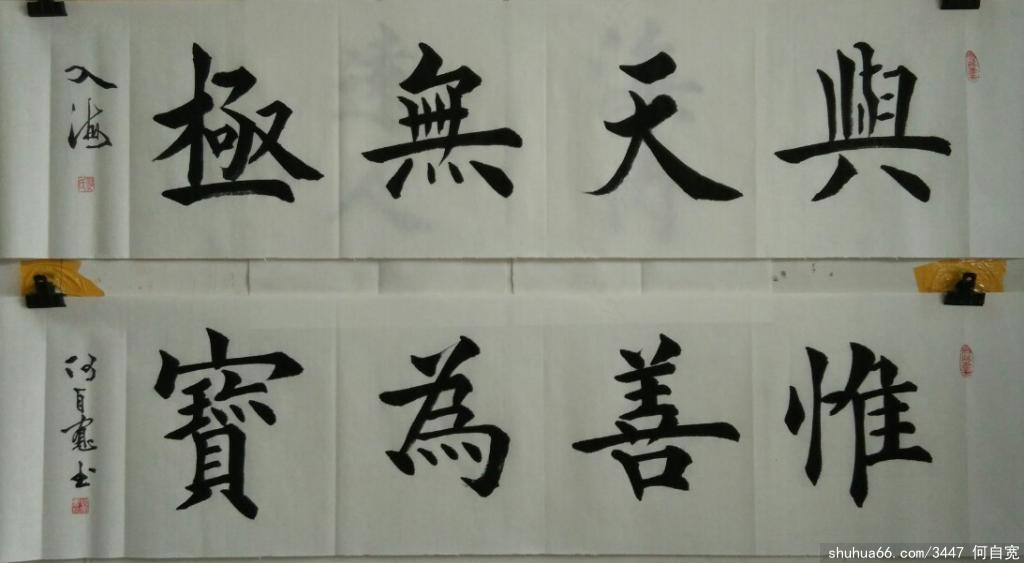 與天無極
入海
惟善為寶
何自寬书
shuhua66.com/3447 何自宽